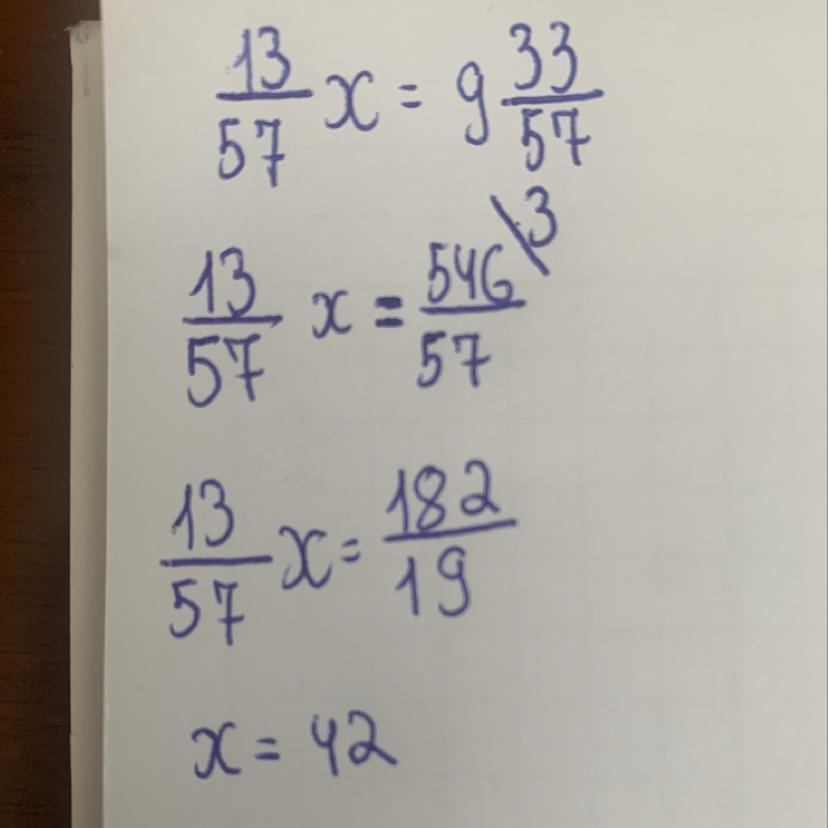 13/57 x = 9 33/57
13/57 x = 546/57 \3
13/57 x = 182/19
x = 42